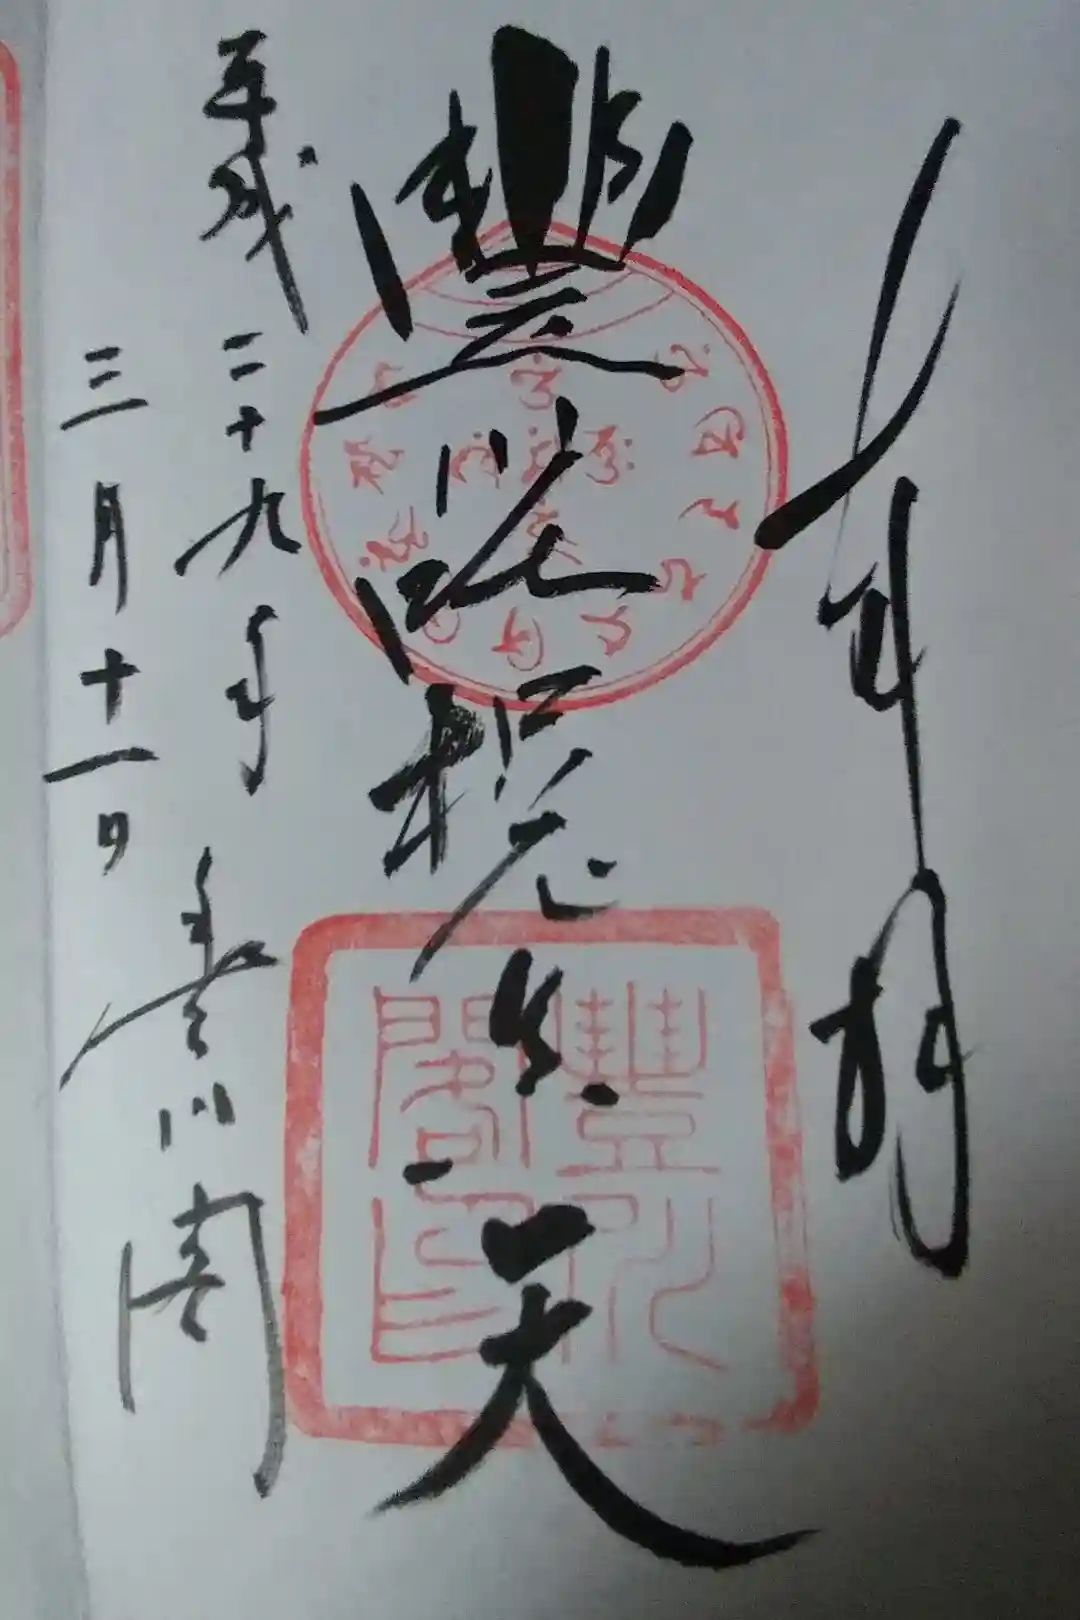 奉拝
豐川吒枳尼眞天
平成二十九年
三月十一日
豊川閣
豐川
閣印